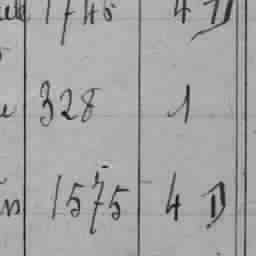 1745 4 D
328 1
1575 4 D